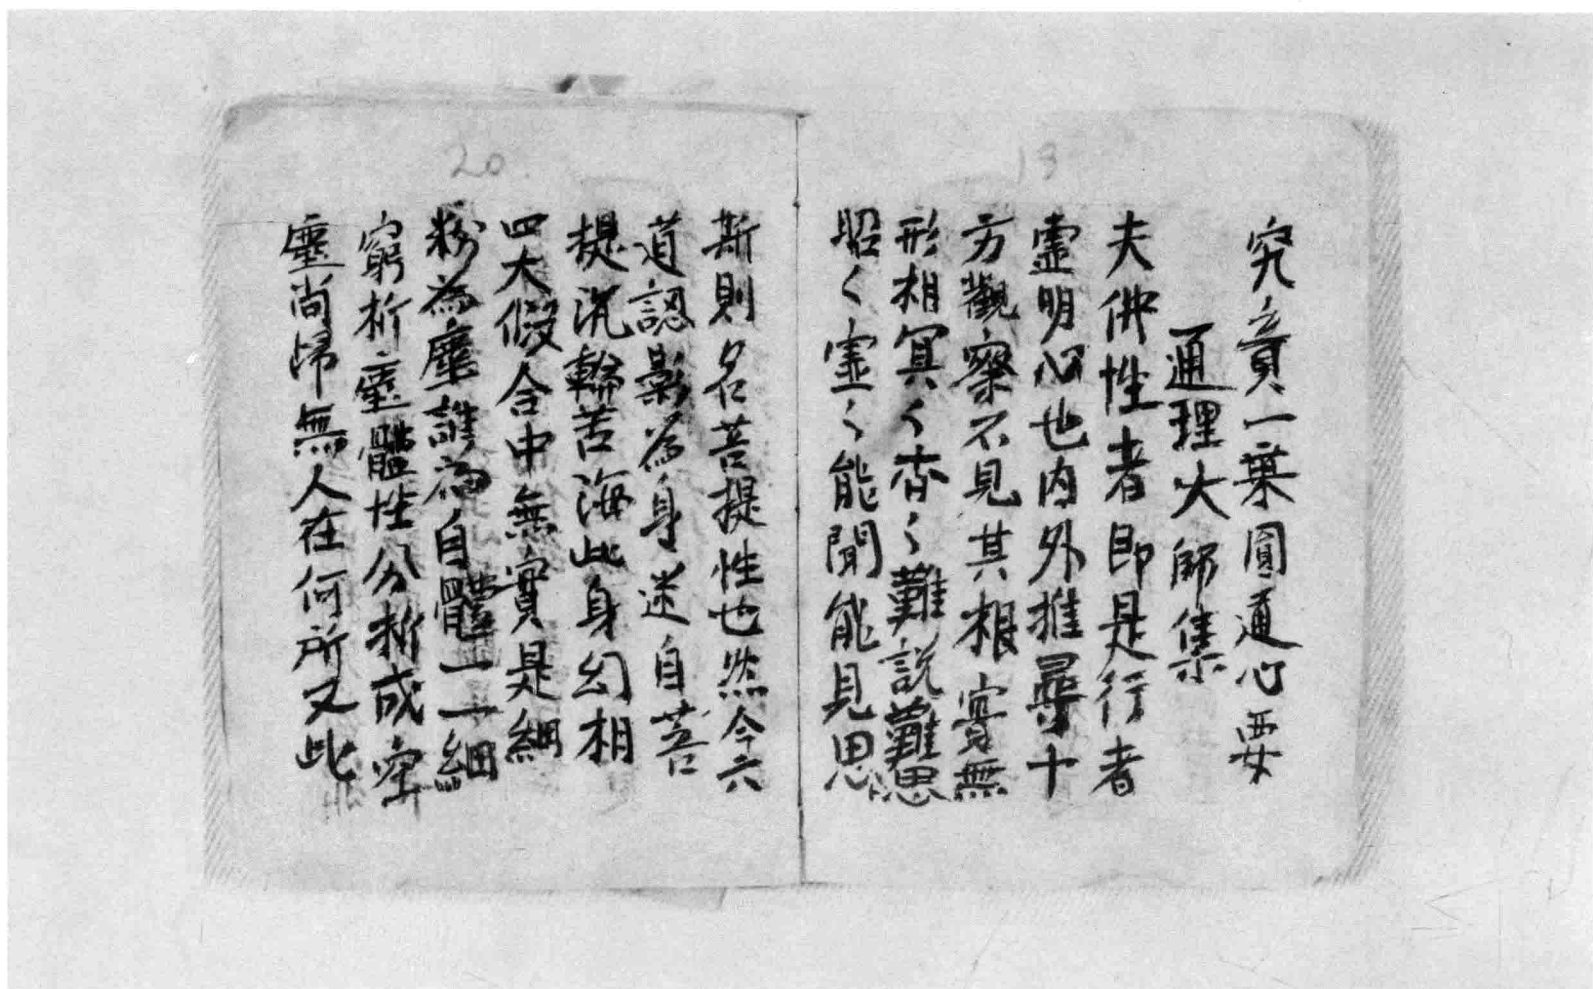 19
究竟一乘圓通心要
通理大師集
夫佛性者即是行者
靈明心也内外推尋十
方觀察不見其根實無
形相冥〻杳〻難説難思
昭〻靈〻能聞能見思
20
斯則名菩提性也然今六
道認影為身迷自菩
提沉輪苦海此身幻相
四大假合中無實是細
粉為塵誰為自體一一細
窮析塵體性分析成空
塵尚歸無人在何所又此